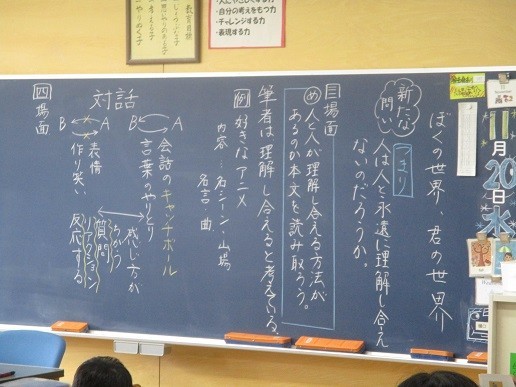 教育目標
・自分の考えをもつ力
・チャレンジする力
・表現する力
11月20日水
ぼくの世界、君の世界
新たな問い
つまり
人は人と永遠に理解し合えないのだろうか。
三場面
め
人と人が理解し合える方法が
あるのか本文を読み取ろう。
筆者は理解し合えると考えている。
例
好きなアニメ
内容…名シーン・山場
名言・曲
対話
A
B
会話のキャッチボール
言葉のやりとり
感じ方が
ちがう
質問
リアクション
反応する
A
B
表情
作り笑い
四場面